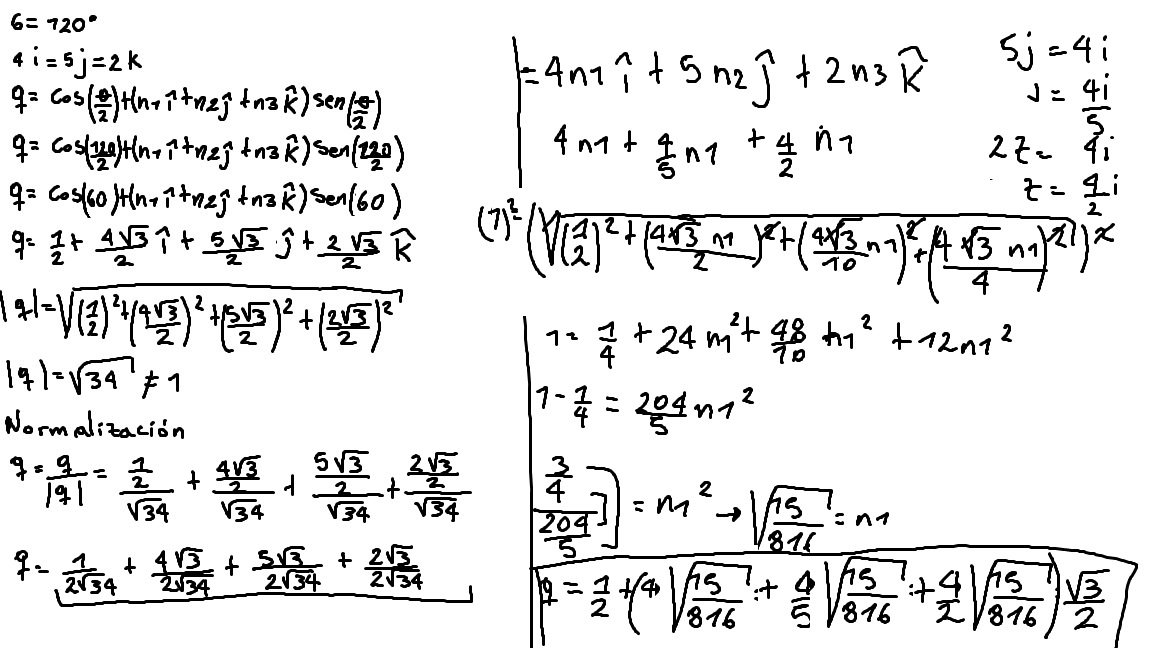 6= 120°
4 i = 5 j = 2 k
q= Cos(θ/2)+(n1 î +n2ĵ +n3 k̂) sen(θ/2)
q= Cos(120/2)+(n1 î +n2ĵ +n3 k̂) sen(120/2)
q= Cos(60)+(n1 î +n2ĵ +n3 k̂) sen(60)
q= 1/2 + 4√3/2 î + 5√3/2 ĵ + 2√3/2 k̂
|q|=√((1/2)²+(4√3/2)²+(5√3/2)²+(2√3/2)²)
|q|=√34 ≠ 1
Normalización
q= q/|q| = (1/2)/√34 + (4√3/2)/√34 + (5√3/2)/√34 + (2√3/2)/√34
q= 1/2√34 + 4√3/2√34 + 5√3/2√34 + 2√3/2√34
= 4n1 î + 5 n2 ĵ + 2 n3 k̂
4 n1 + 4/5 n1 + 4/2 n1
5j = 4i
J = 4i/5
2z= 4i
z= 4/2 i
(1)²=(√((1/2)²+(4√3 n1/2)²+(4√3/10 n1)²+(4√3 n1/4)²))²
1= 1/4 + 24 n1² + 48/10 n1² + 12n1²
1-1/4 = 204/5 n1²
(3/4)/(204/5) = n1² → √(15/816) = n1
q = 1/2 +(4 √(15/816) + 4/5 √(15/816) + 4/2 √(15/816)) √3/2